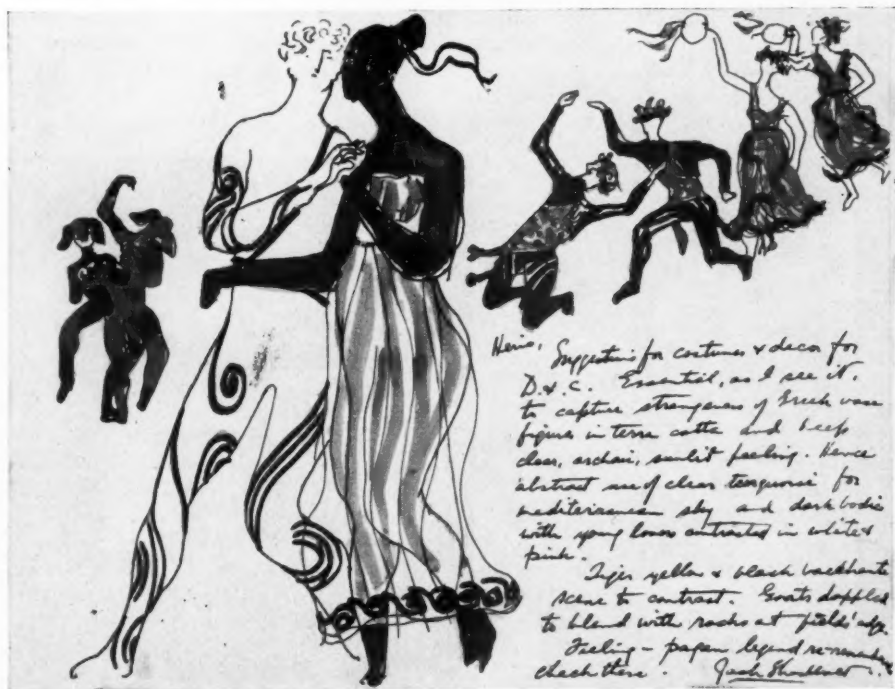 Suggestions for costumes & decor for
D. & C. Essential, as I see it,
to capture strangeness of Greek vase
figures in terra cotta and keep
clear, archaic, sunlit feeling. Hence
abstract use of clear turquoise for
mediterranean sky and dark bodies
with young lovers contrasted in white &
pink.
Tiger yellow & black bacchante
scene to contrast. Goats dappled
to blend with rocks at field's edge
Feeling - pagan legend re-remembered
check there. Jack